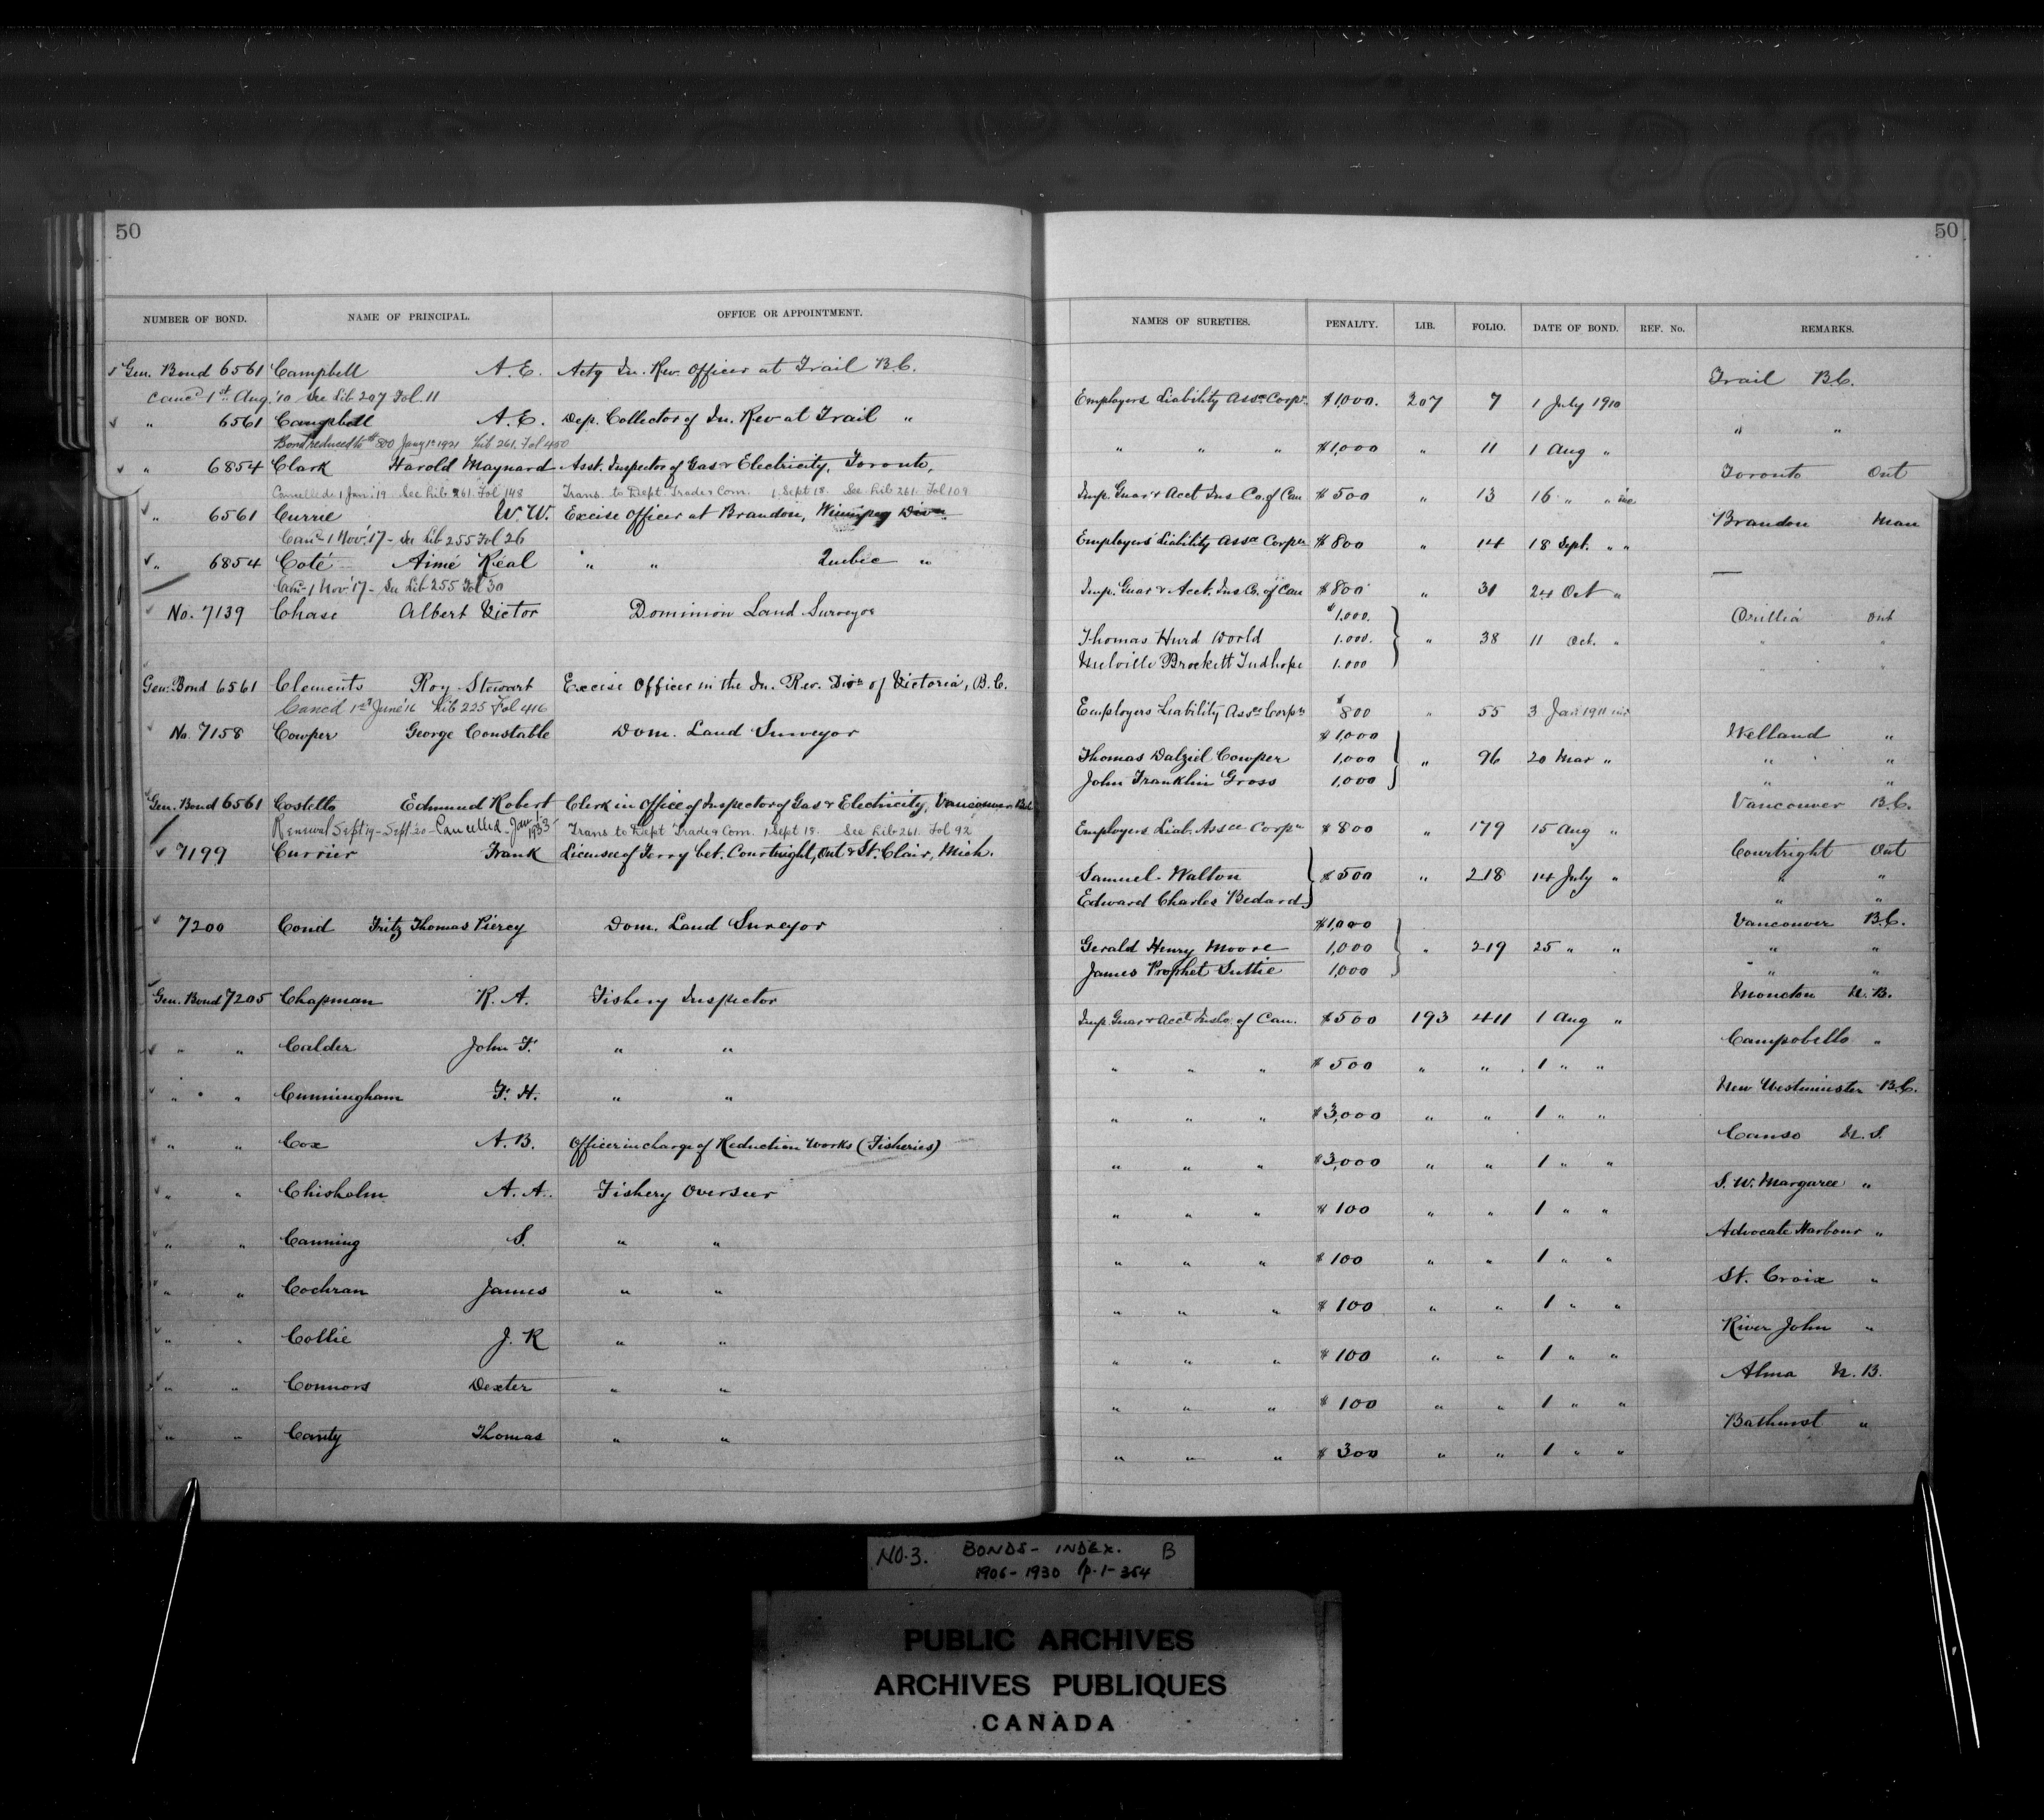 50
50
NUMBER OF BOND. NAME OF PRINCIPAL. OFFICE OR APPOINTMENT. NAMES OF SURETIES. PENALTY. LIB. FOLIO. DATE OF BOND. REF. No. REMARKS.
Gen. Bond 6561 Campbell A.E. Actg In. Rev. Officer at Trail B.C. Trail B.C.
Canc'd 1st Aug. '10 See Lib 207 Fol. 11 Employers Liability Assce Corpn $1,000. 207 7 1 July 1910
" 6561 Campbell A.E. Dep. Collector of In. Rev at Trail " " "
Bond reduced to $800 Jany 1st 1921 Lib 261. Fol 450 " " " $1,000 11 1 Aug "
" 6854 Clark Harold Maynard Asst. Inspector of Gas & Electricity, Toronto, Toronto Ont
Cancelled 1 Jan. '19 See Lib 261. Fol 148 Trans. to Dept. Trade & Com. 1 Sept 18. See Lib 261. Fol 109 Imp. Guar & Acct Ins Co. of Can $500 " 13 16 " "
" 6561 Currie W.W. Excise Officer at Brandon, Winnipeg Divn. Brandon Man
Canc 1 Nov. '17 - See Lib 255 Fol 26 Employers' Liability Assce Corpn $800 " 14 18 Sept. " "
" 6854 Coté Aimé Réal " " Quebec " —
Canc 1 Nov. '17 - See Lib 255 Fol 30 Imp. Guar & Acct. Ins Co. of Can $800 " 31 24 Oct "
No. 7139 Chase Albert Victor Dominion Land Surveyor $1,000. Orillia Ont
Thomas Hurd World 1.000. " 38 11 Oct. " " "
Melville Brockett Tudhope 1.000 " "
Gen. Bond 6561 Clements Roy Stewart Excise Officer in the In. Rev. Divn of Victoria, B.C.
Cancd 1st June '16 Lib 225 Fol 416 Employers Liability Assce Corpn $800 " 55 3 Jan 1911
No. 7158 Cowper George Constable Dom. Land Surveyor $1,000 Welland "
Thomas Dalziel Cowper 1,000 " 96 20 Mar " " "
John Franklin Gross 1,000 " "
Gen. Bond 6561 Costello Edmund Robert Clerk in Office of Inspector of Gas & Electricity, Vancouver B.C. Vancouver B.C.
Renewal Sept '19 - Sept. '20 - Cancelled - Jan 1 1933 Trans to Dept Trade & Com. 1 Sept 18. See Lib 261. Fol 92 Employers Liab. Assce Corpn $800 " 179 15 Aug "
7199 Currier Frank Licensee of Ferry bet. Courtright, Ont & St. Clair, Mich. Courtright Ont
Samuel Walton $500 " 218 14 July " " "
Edward Charles Bedard " "
7200 Cond Fritz Thomas Piercy Dom. Land Surveyor $1,000 Vancouver B.C.
Gerald Henry Moore 1,000 " 219 25 " " " "
James Prophet Suttie 1,000 " "
Gen. Bond 7205 Chapman R. A. Fishery Inspector Moncton N.B.
Imp. Guar & Acct Ins Co of Can. $500 193 411 1 Aug "
" " Calder John F. " " Campobello "
" " " $500 " " 1 " "
" " Cunningham F. H. " " New Westminster B.C.
" " " $3,000 " " 1 " "
" " Cox A. B. Officer in charge of Reduction Works (Fisheries) Canso N.S.
" " " $3,000 " " 1 " "
" " Chisholm A. A. Fishery Overseer S. W. Margaree "
" " " $100 " " 1 " "
" " Canning S. " " Advocate Harbour "
" " " $100 " " 1 " "
" " Cochran James " " St. Croix "
" " " $100 " " 1 " "
" " Collie J. R " " River John "
" " " $100 " " 1 " "
" " Connors Dexter " " Alma N.B.
" " " $100 " " 1 " "
" " Canty Thomas " " Bathurst "
" " " $300 " " 1 " "
NO.3. BONDS - INDEX. B
1906 - 1930 p.1-354
PUBLIC ARCHIVES
ARCHIVES PUBLIQUES
CANADA